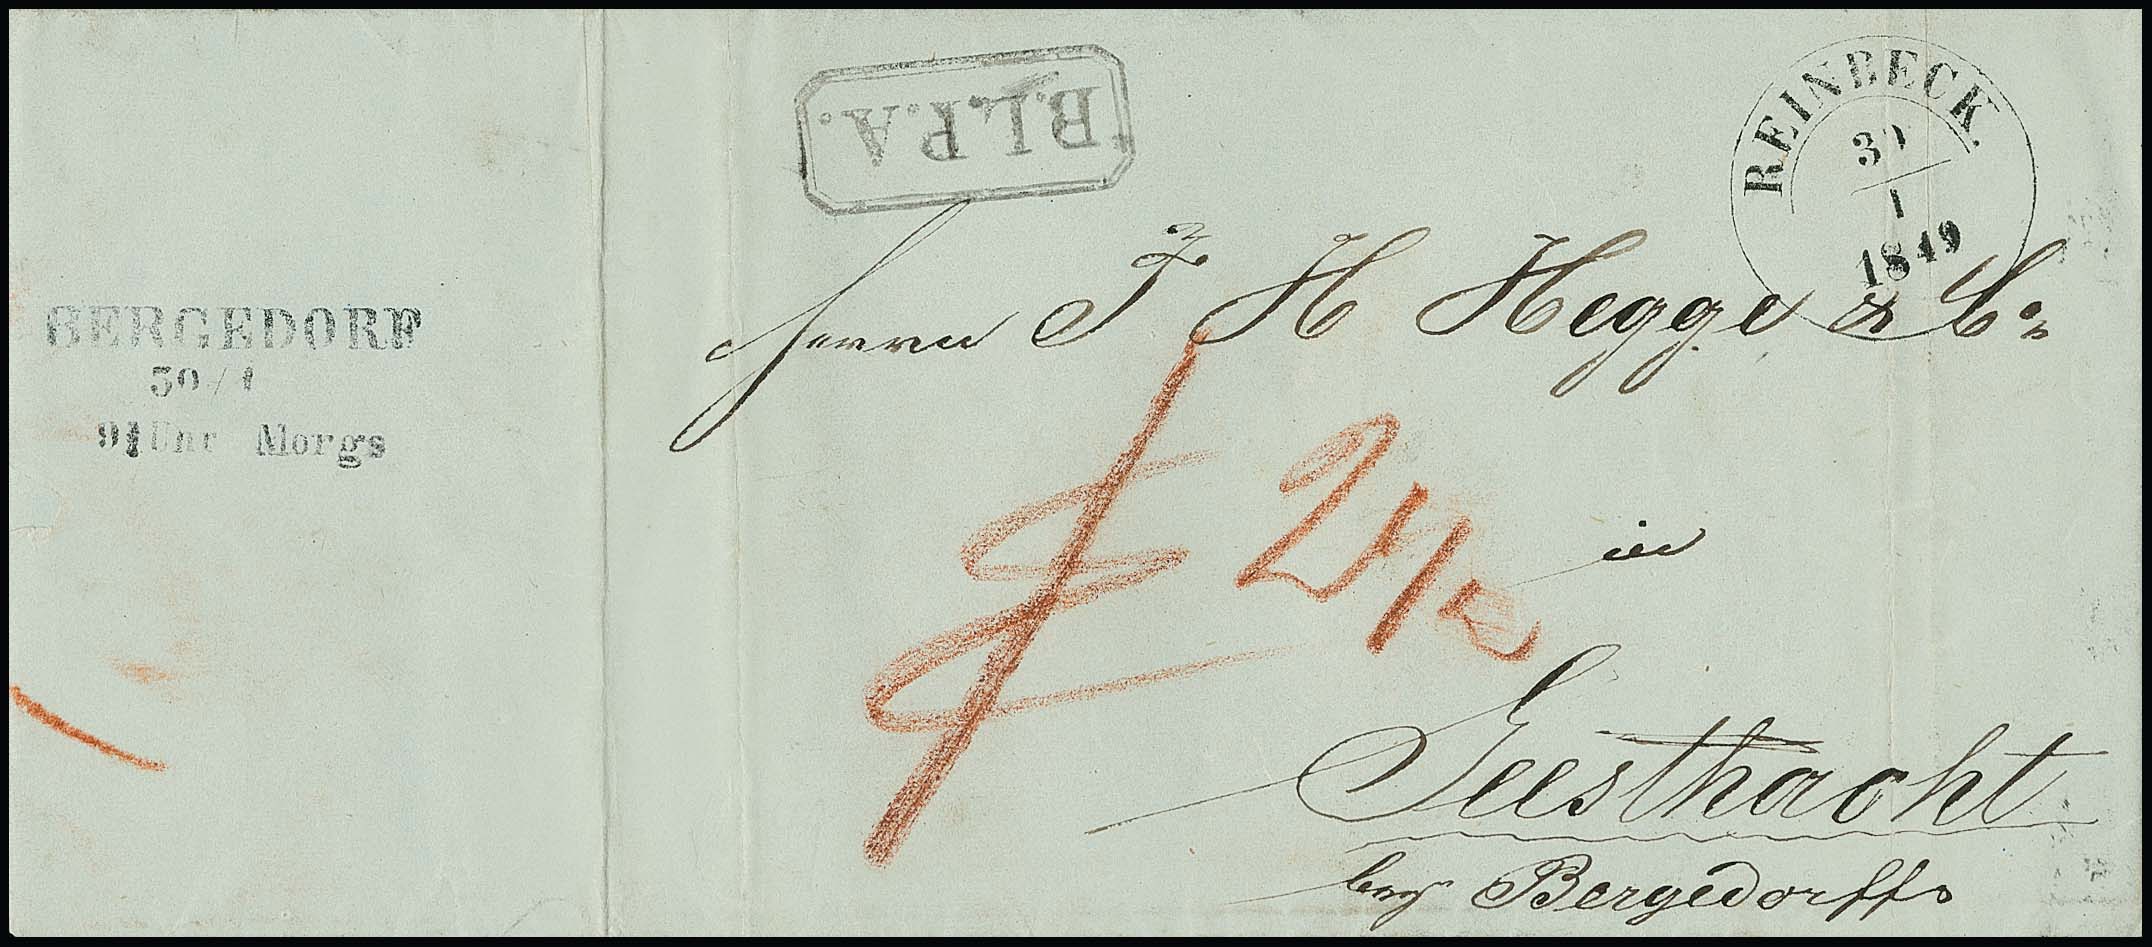 B.L.P.A.
REINBECK.
30
1
1849
BERGEDORF
30/1
9¼ Uhr Morgs
Herrn J H Hegge & Co
2½
in
Geesthacht
bey Bergedorff